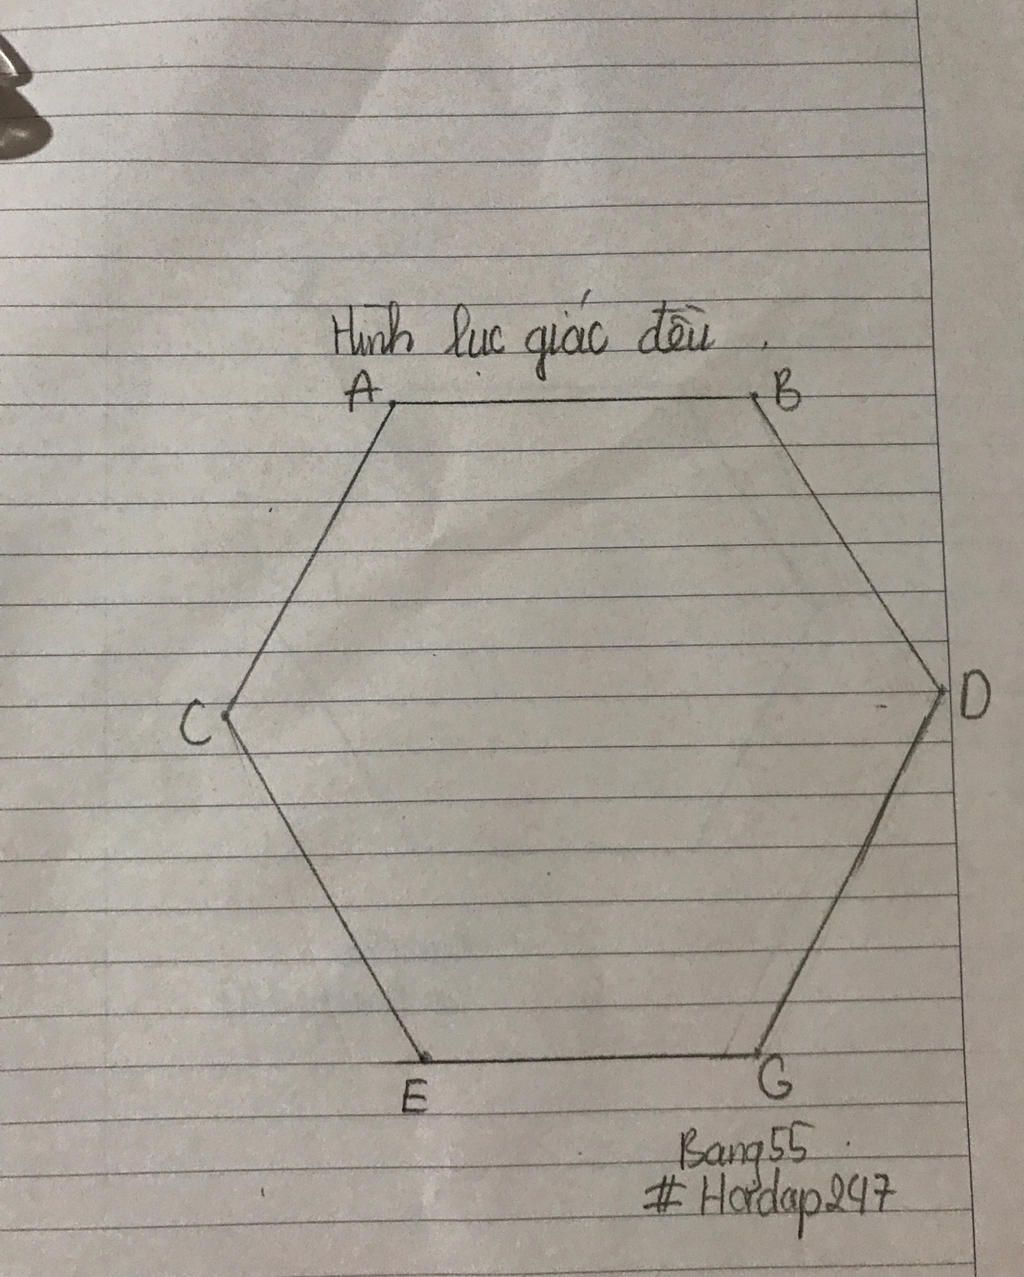 Hình lục giác đều.
A
B
C
D
E
G
Bang55
#Hoidap247